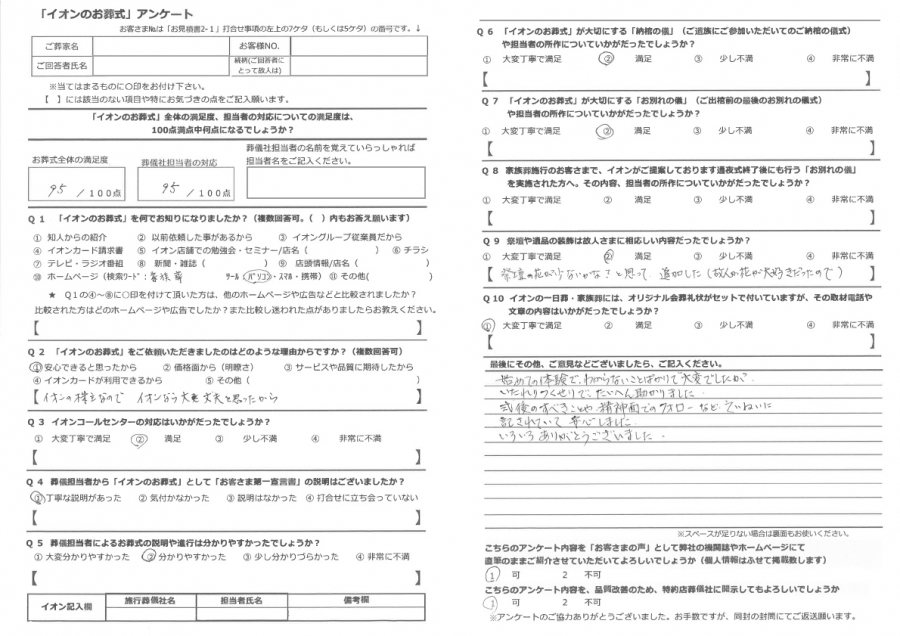 「イオンのお葬式」アンケート
お客さま№は「お見積書2-1」打合せ事項の左上の7ケタ（もしくは5ケタ）の番号です。↓
ご葬家名 お客様NO.
ご回答者氏名 続柄(ご回答者にとって故人は)
※当てはまるものに○印をお付け下さい。
【　】には該当のない項目や特にお気づきの点をご記入願います。
「イオンのお葬式」全体の満足度、担当者の対応についての満足度は、
100点満点中何点になるでしょうか？
お葬式全体の満足度
95 / 100点
葬儀社担当者の対応
95 / 100点
葬儀社担当者の名前を覚えていらっしゃれば
担当者名をご記入ください。
Q 1 「イオンのお葬式」を何でお知りになりましたか？（複数回答可。（　）内もお答え願います）
① 知人からの紹介 ② 以前依頼した事があるから ③ イオングループ従業員だから
④ イオンカード請求書 ⑤ イオン店舗での勉強会・セミナー/店名（　） ⑥ チラシ
⑦ テレビ・ラジオ番組 ⑧ 新聞・雑誌（　） ⑨ 店頭情報/店名（　）
⑩ ホームページ（検索ワード：家族葬 ツール パソコン・スマホ・携帯） ⑪ その他(　)
★ Q１の④～⑧に○印を付けて頂いた方は、他のホームページや広告などと比較されましたか？
比較された方はどのホームページや広告でしたか？また比較し迷われた点がありましたらお教えください。
【　】
Q 2 「イオンのお葬式」をご依頼いただきましたのはどのような理由からですか？（複数回答可）
① 安心できると思ったから ② 価格面から（明瞭さ） ③ サービスや品質に期待したから
④ イオンカードが利用できるから ⑤ その他（　）
【イオンの株主なので イオンなら大丈夫と思ったから 】
Q 3 イオンコールセンターの対応はいかがだったでしょうか？
① 大変丁寧で満足 ② 満足 ③ 少し不満 ④ 非常に不満
【　】
Q 4 葬儀担当者から「イオンのお葬式」として「お客さま第一宣言書」の説明はございましたか？
① 丁寧な説明があった ② 気付かなかった ③ 説明はなかった ④ 打合せに立ち会っていない
【　】
Q 5 葬儀担当者によるお葬式の説明や進行は分かりやすかったでしょうか？
① 大変分かりやすかった ② 分かりやすかった ③ 少し分かりづらかった ④ 非常に不満
【　】
イオン記入欄 施行葬儀社名 担当者氏名 備考欄
Q 6 「イオンのお葬式」が大切にする「納棺の儀」（ご遺族にご参加いただいてのご納棺の儀式）
や担当者の所作についていかがだったでしょうか？
① 大変丁寧で満足 ② 満足 ③ 少し不満 ④ 非常に不満
【　】
Q 7 「イオンのお葬式」が大切にする「お別れの儀」（ご出棺前の最後のお別れの儀式）
や担当者の所作についていかがだったでしょうか？
① 大変丁寧で満足 ② 満足 ③ 少し不満 ④ 非常に不満
【　】
Q 8 家族葬施行のお客さまで、イオンがご提案しております通夜式終了後にも行う「お別れの儀」
を実施された方へ。その内容、担当者の所作についていかがだったでしょうか？
① 大変丁寧で満足 ② 満足 ③ 少し不満 ④ 非常に不満
【　】
Q 9 祭壇や遺品の装飾は故人さまに相応しい内容だったでしょうか？
① 大変丁寧で満足 ② 満足 ③ 少し不満 ④ 非常に不満
【祭壇の花が少ないかなぁと思って 追加した（故人が花が大好きだったので）】
Q 10 イオンの一日葬・家族葬には、オリジナル会葬礼状がセットで付いていますが、その取材電話や
文章の内容はいかがだったでしょうか？
① 大変丁寧で満足 ② 満足 ③ 少し不満 ④ 非常に不満
【　】
最後にその他、ご意見などございましたら、ご記入ください。
始めての体験で、わからないことばかりで大変でしたが、
いたれりつくせりで、たいへん助かりました。
式後のすべきことや 精神面でのフォローなど ていねいに
記されていて 安心しました。
いろいろありがとうございました。
※スペースが足りない場合は裏面もお使いください。
こちらのアンケート内容を「お客さまの声」として弊社の機関誌やホームページにて
直筆のままご紹介させていただいてよろしいでしょうか（個人情報はふせて掲載致します）
1 可 2 不可
こちらのアンケート内容を、品質改善のため、特約店葬儀社に開示してもよろしいでしょうか
1 可 2 不可
※アンケートのご協力ありがとうございました。お手数ですが、同封の封筒にてご返送願います。